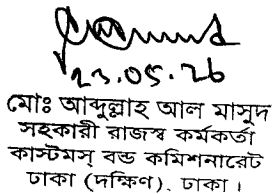 23.05.26
মোঃ আব্দুল্লাহ আল মাসুদ
সহকারী রাজস্ব কর্মকর্তা
কাস্টমস্ বন্ড কমিশনারেট
ঢাকা (দক্ষিণ), ঢাকা।